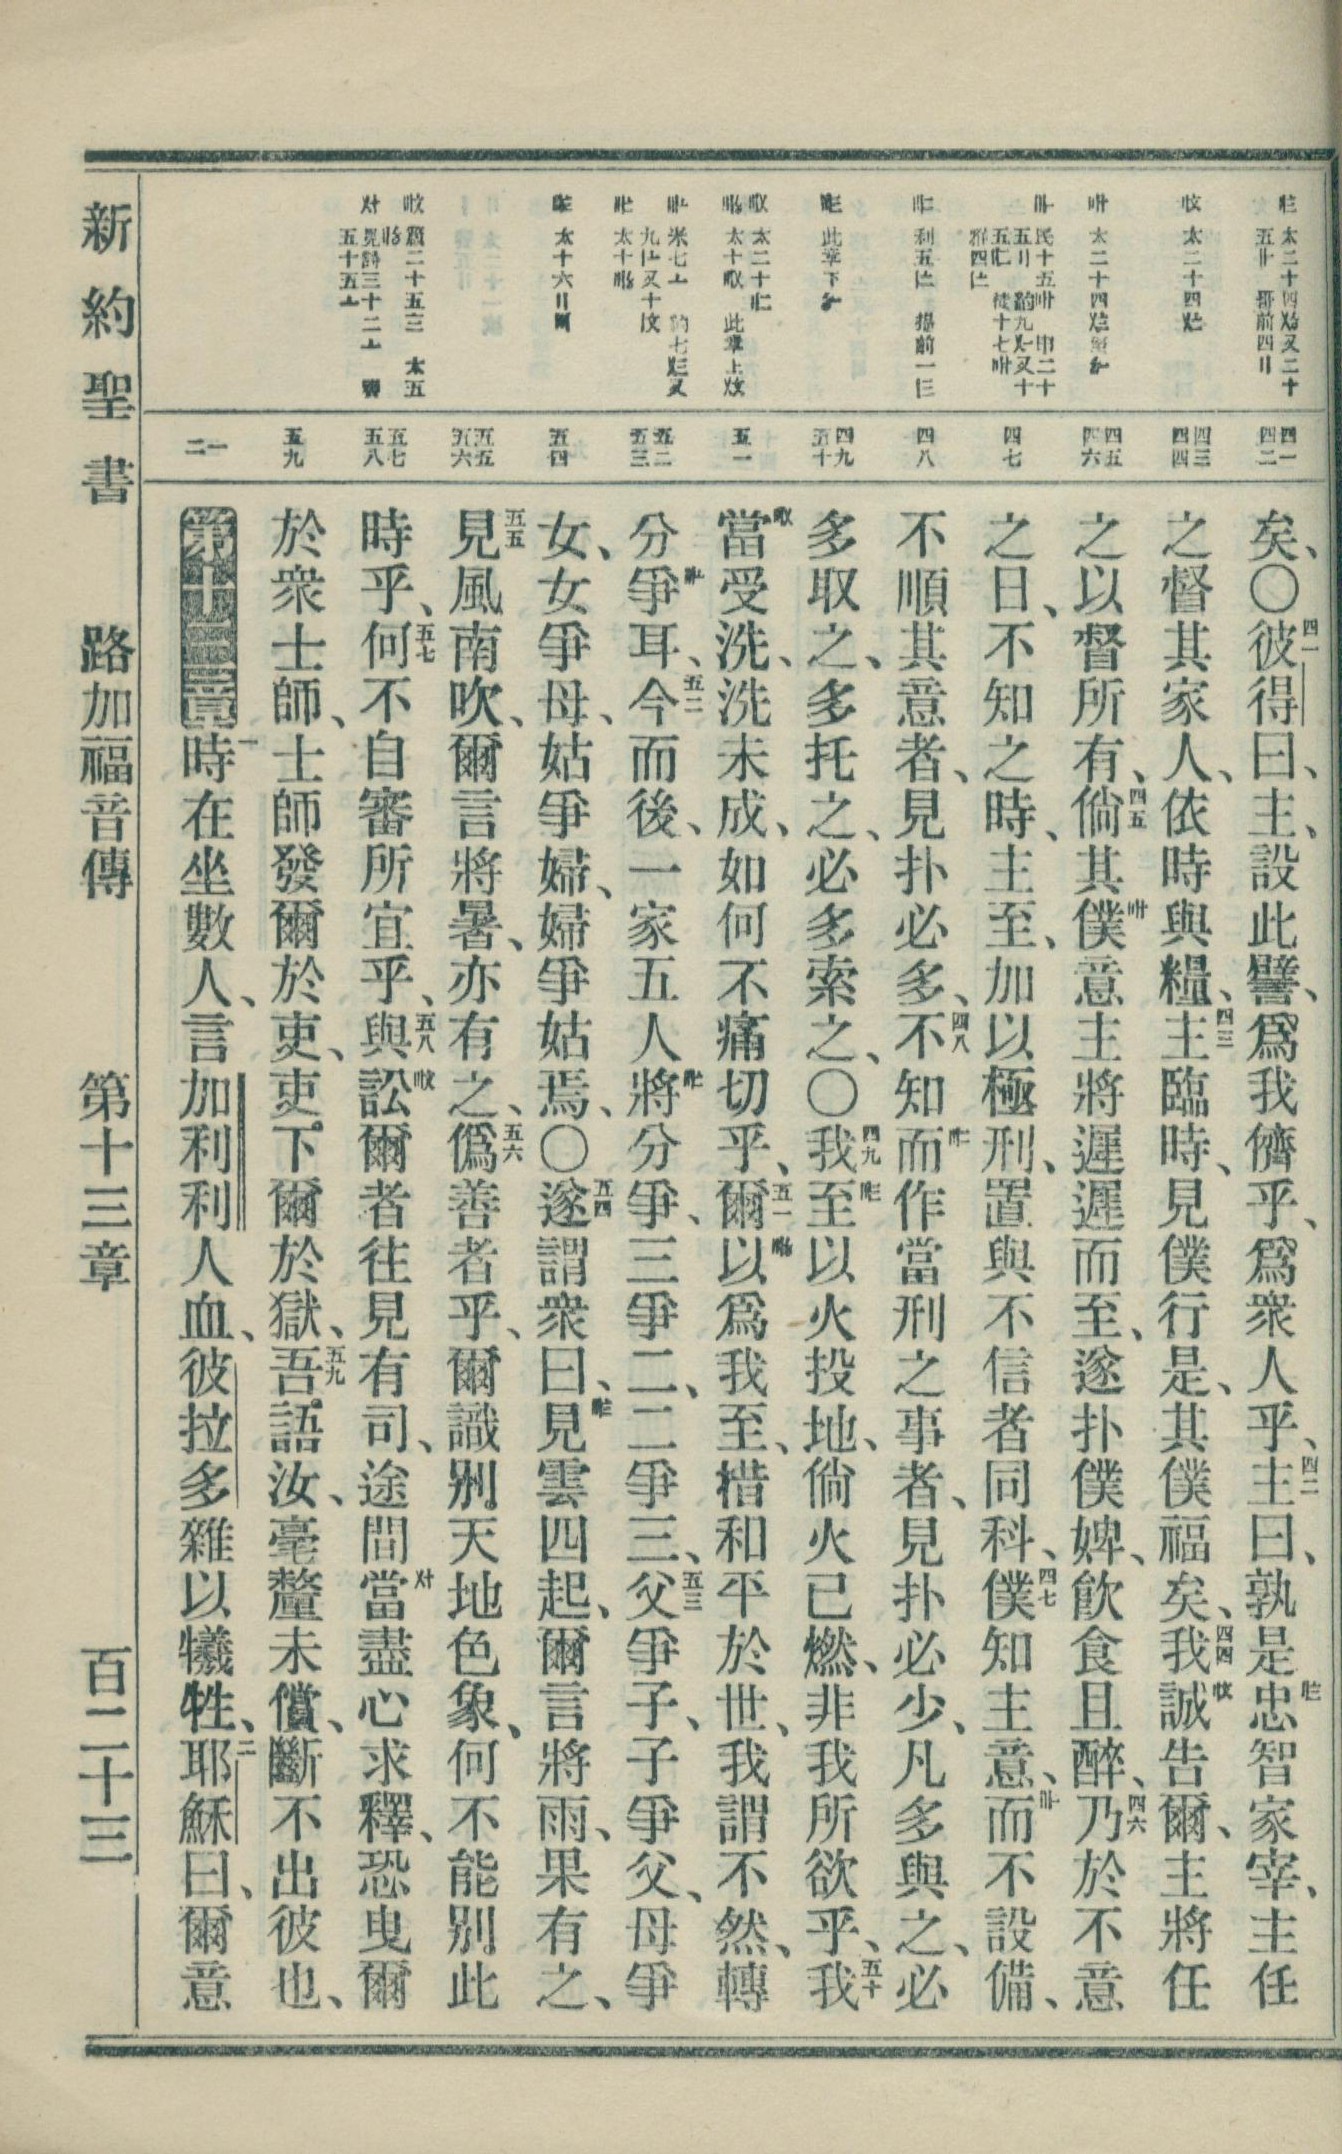 矣、〇四一彼得曰、主、設此譬、爲我儕乎、爲衆人乎、四二主曰、孰是忠智家宰、主任
之督其家人、依時與糧、四三主臨時、見僕行是、其僕福矣、四四我誠告爾、主將任
之以督所有、四五倘其僕意主將遲遲而至、遂扑僕婢、飮食且醉、四六乃於不意
之日、不知之時、主至、加以極刑、置與不信者同科、四七僕知主意、而不設備、
不順其意者、見扑必多、四八不知而作當刑之事者、見扑必少、凡多與之、必
多取之、多托之、必多索之、〇四九我至以火投地、倘火已燃、非我所欲乎、五十我
當受洗、洗未成、如何不痛切乎、五一爾以爲我至、措和平於世、我謂不然、轉
分爭耳、五二今而後、一家五人將分爭、三爭二、二爭三、五三父爭子、子爭父、母爭
女、女爭母、姑爭婦、婦爭姑焉、〇五四遂謂衆曰、見雲四起、爾言將雨、果有之、
五五見風南吹、爾言將暑、亦有之、五六僞善者乎、爾識別天地色象、何不能別此
時乎、五七何不自審所宜乎、五八與訟爾者往見有司、途間當盡心求釋、恐曳爾
於衆士師、士師發爾於吏、吏下爾於獄、五九吾語汝、毫釐未償、斷不出彼也、
第十三章 一時在坐數人、言加利利人血、彼拉多雜以犧牲、二耶穌曰、爾意
四一
四二
四三
四四
四五
四六
四七
四八
四九
五十
五一
五二
五三
五四
五五
五六
五七
五八
五九
一
二
新約聖書 路加福音傳 第十三章 百二十三